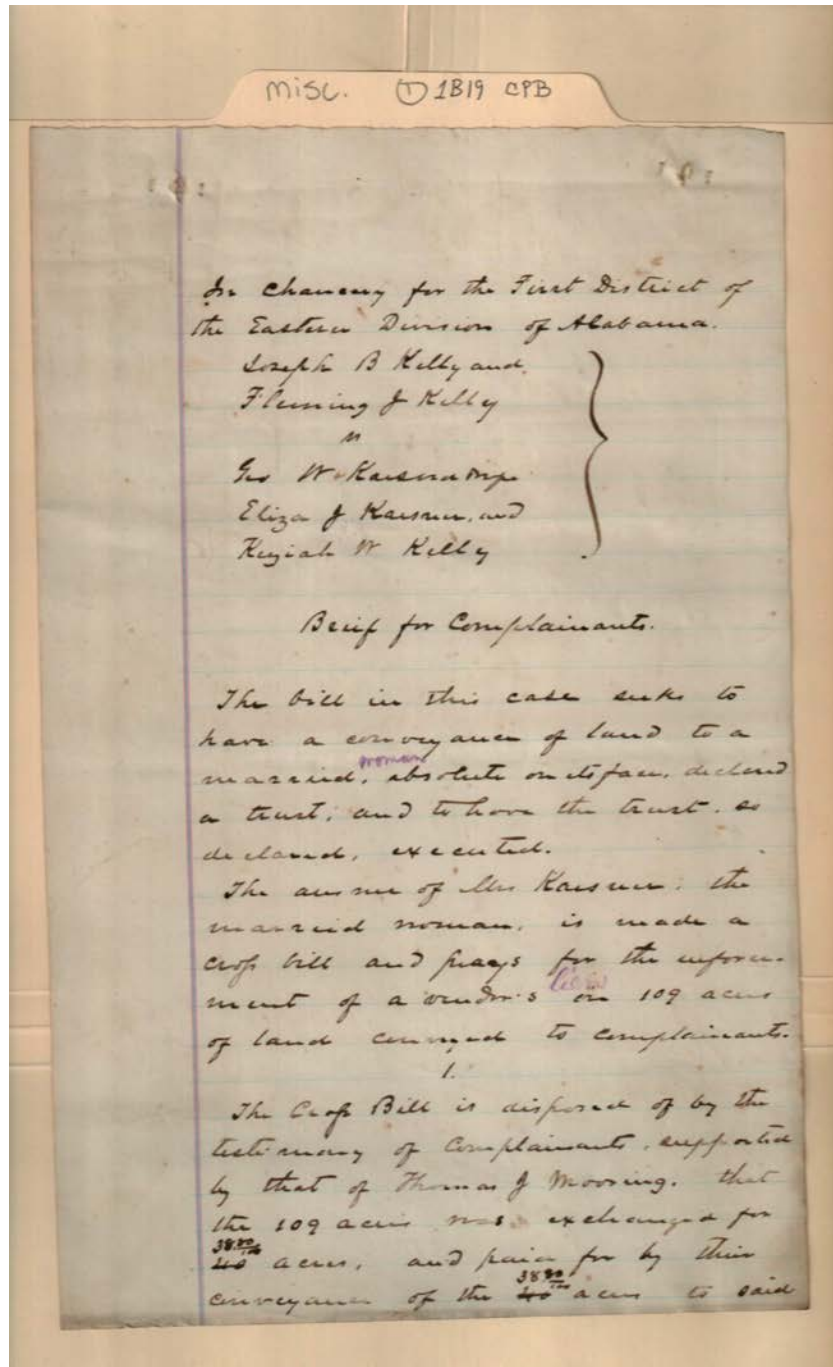 misc. ① 1B19 CPB
In Chancery for the First District of
the Eastern Division of Alabama.
Joseph B Kelly and,
Fleming J Kelly
vs
Geo W Kaesner
Eliza J Kaesner, and
Keziah W Kelly
Brief for Complainants.
The bill in this case seeks to
have a conveyance of land to a
woman
married, absolute on its face, declared
a trust; and to have the trust, so
declared, executed.
The answer of Mrs Kaesner, the
married woman, is made a
cross bill and prays for the enforce-
lien
ment of a vendor's on 109 acres
of land conveyed to complainants.
1.
The Cross Bill is disposed of by the
testimony of Complainants, supported
by that of Thomas J Mooring. that
the 109 acres was exchanged for
38 80/100
40 acres, and paid for by their
38 80/100
conveyance of the 40 acres to said